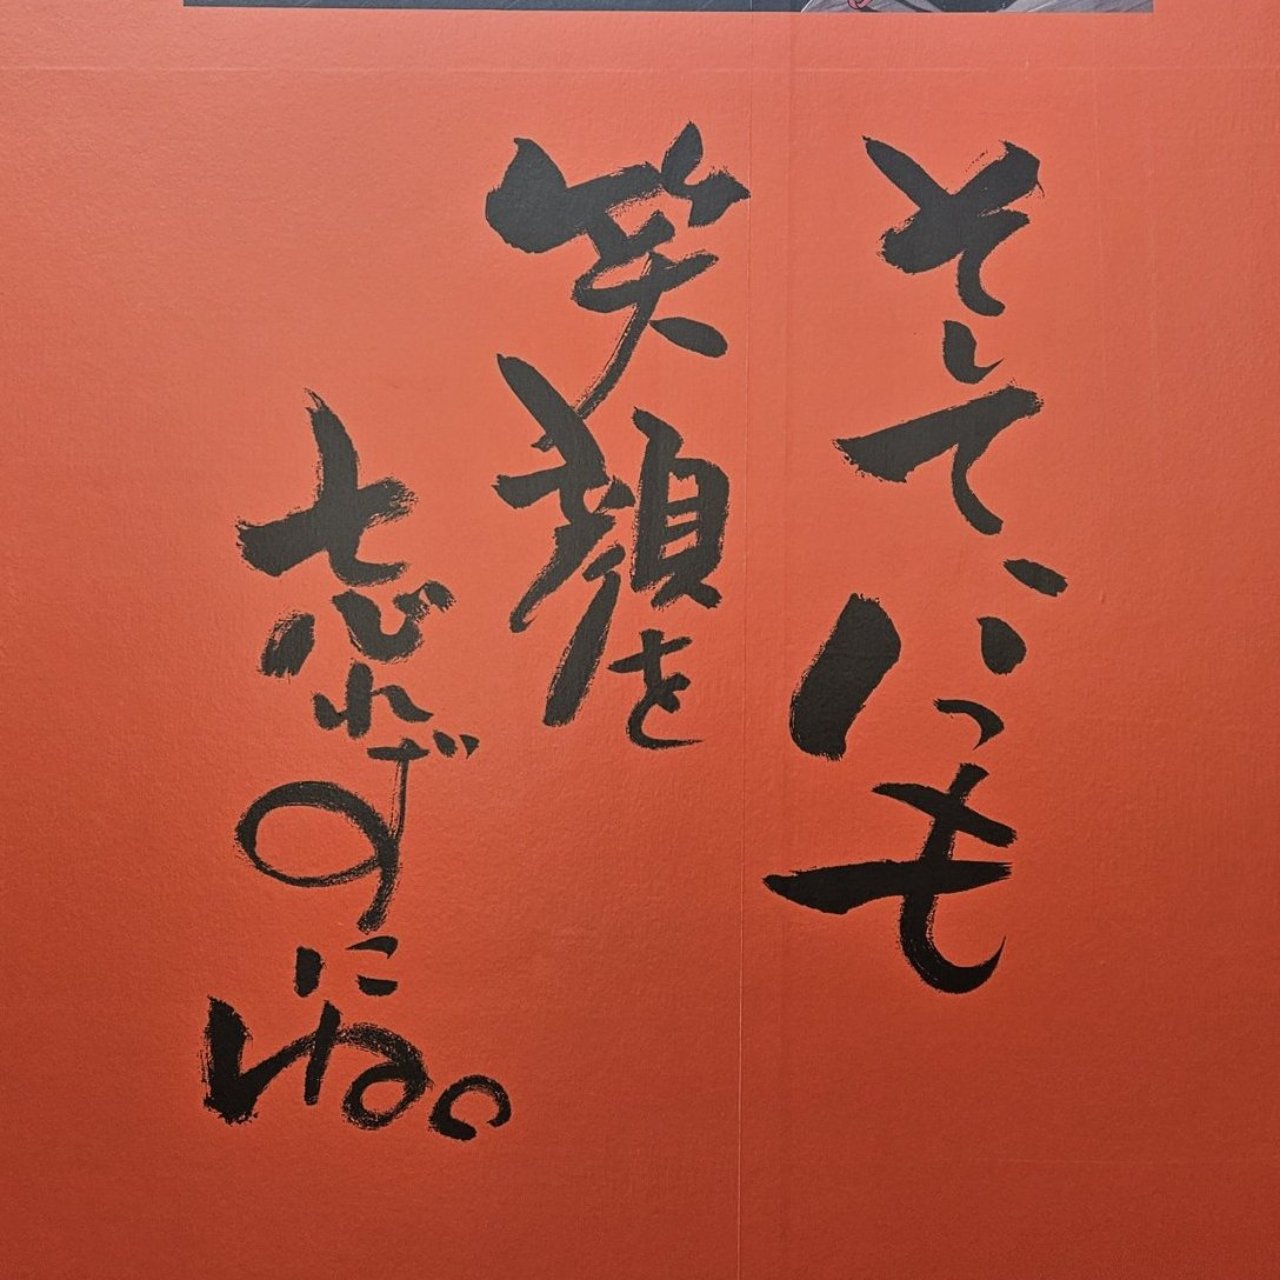 そして、いつも
笑顔を
忘れずにね。